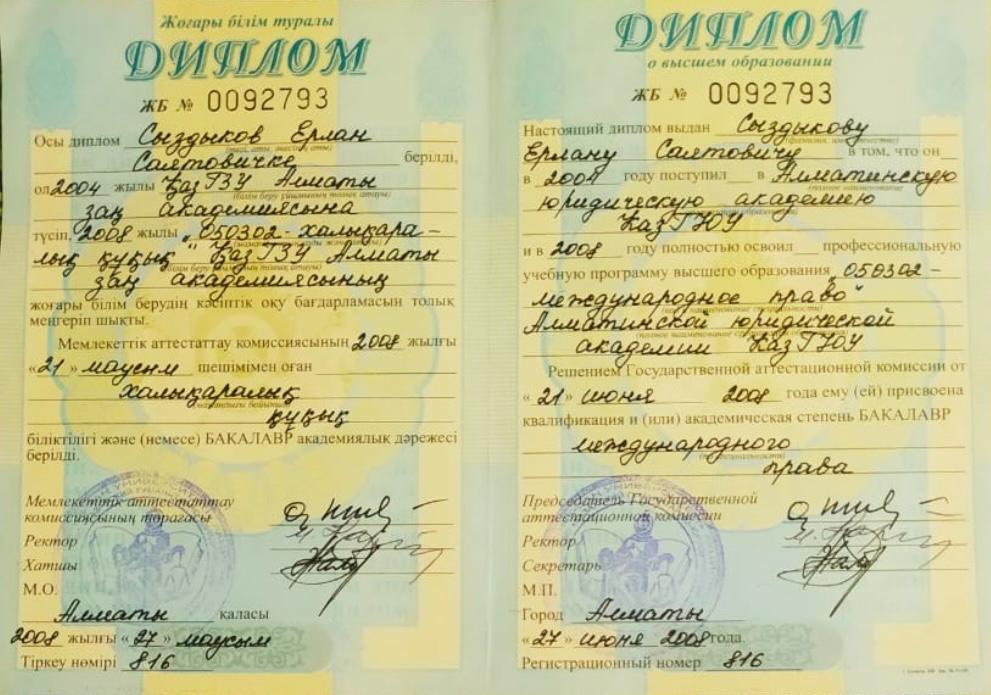 Жоғары білім туралы
ДИПЛОМ
ЖБ № 0092793
Осы диплом Сыздыков Ерлан
Саятовичке берілді,
ол 2004 жылы ҚазГЗУ Алматы
заң академиясына
түсіп, 2008 жылы "050302-халықара-
лық құқық" ҚазГЗУ Алматы
заң академиясының
жоғары білім берудің кәсіптік оқу бағдарламасын толық
меңгеріп шықты.
Мемлекеттік аттестаттау комиссиясының 2008 жылғы
«21» маусым шешімімен оған
халықаралық
құқық
біліктілігі және (немесе) БАКАЛАВР академиялық дәрежесі
берілді.
Мемлекеттік аттестаттау
комиссиясының төрағасы
Ректор
Хатшы
М.О.
Алматы қаласы
2008 жылғы «27» маусым
Тіркеу нөмірі 816
ДИПЛОМ
о высшем образовании
ЖБ № 0092793
Настоящий диплом выдан Сыздыкову
Ерлану Саятовичу в том, что он
в 2004 году поступил в Алматинскую
юридическую академию
КазГЮУ
и в 2008 году полностью освоил профессиональную
учебную программу высшего образования "050302-
международное право"
Алматинской юридической
академии КазГЮУ
Решением Государственной аттестационной комиссии от
«21» июня 2008 года ему (ей) присвоена
квалификация и (или) академическая степень БАКАЛАВР
международного
(по специальности)
права
Председатель Государственной
аттестационной комиссии
Ректор
Секретарь
М.П.
Город Алматы
«27» июня 2008 года.
Регистрационный номер 816